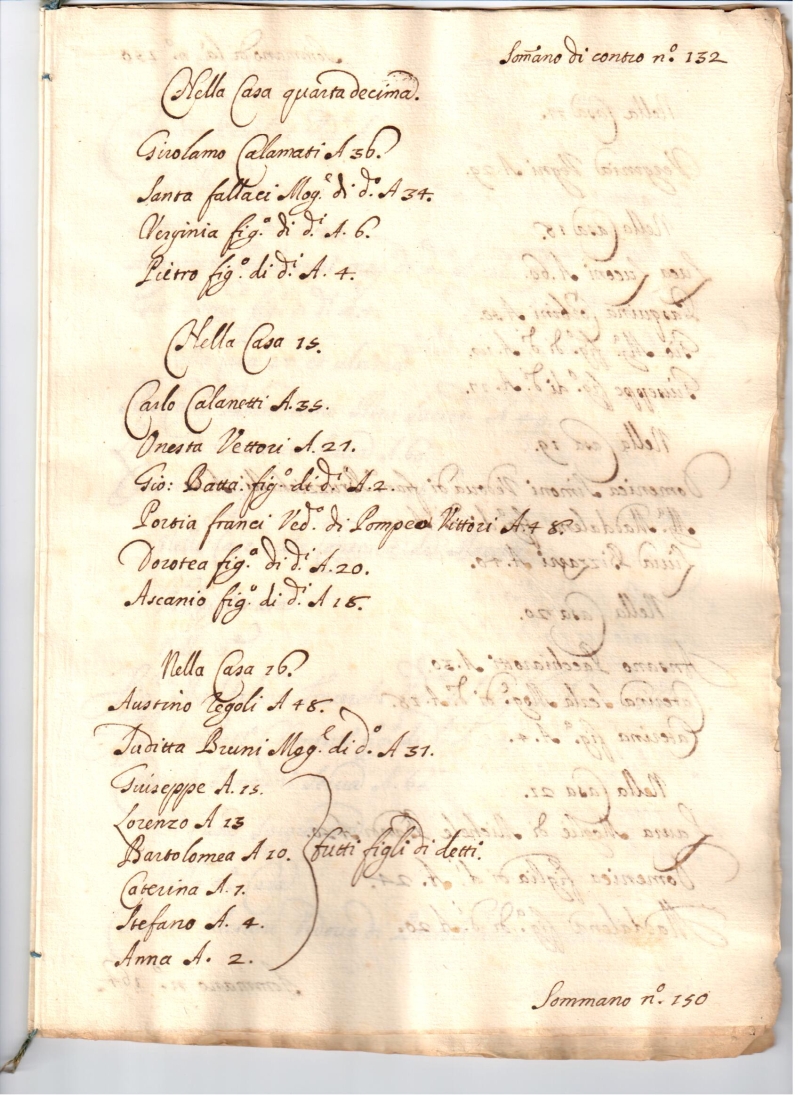 Som̃ano di contro n.º 132
Nella Casa quartadecima.
Girolamo Calamati A 36.
Santa fallaci Mog.e di d.º A 34.
Verginia fig.ª di d.i A. 6.
Pietro fig.º di d.i A. 4.
Nella Casa 15.
Carlo Calanetti A. 35.
Onesta Vettori A. 21.
Gio: Batta: fig.º di d.i A. 2.
Portia franci Ved.ª di Pompeo Vittori A. 48.
Dorotea fig.ª di d.i A. 20.
Ascanio fig.º di d.i A 18.
Nella Casa 16.
Austino Regoli A 48.
Juditta Bruni Mog.e di d.º A 31.
Guiseppe A. 15.
Lorenzo A 13
Bartolomea A 10. tutti figli di detti.
Caterina A. 7.
Stefano A. 4.
Anna A. 2.
Sommano n.º 150